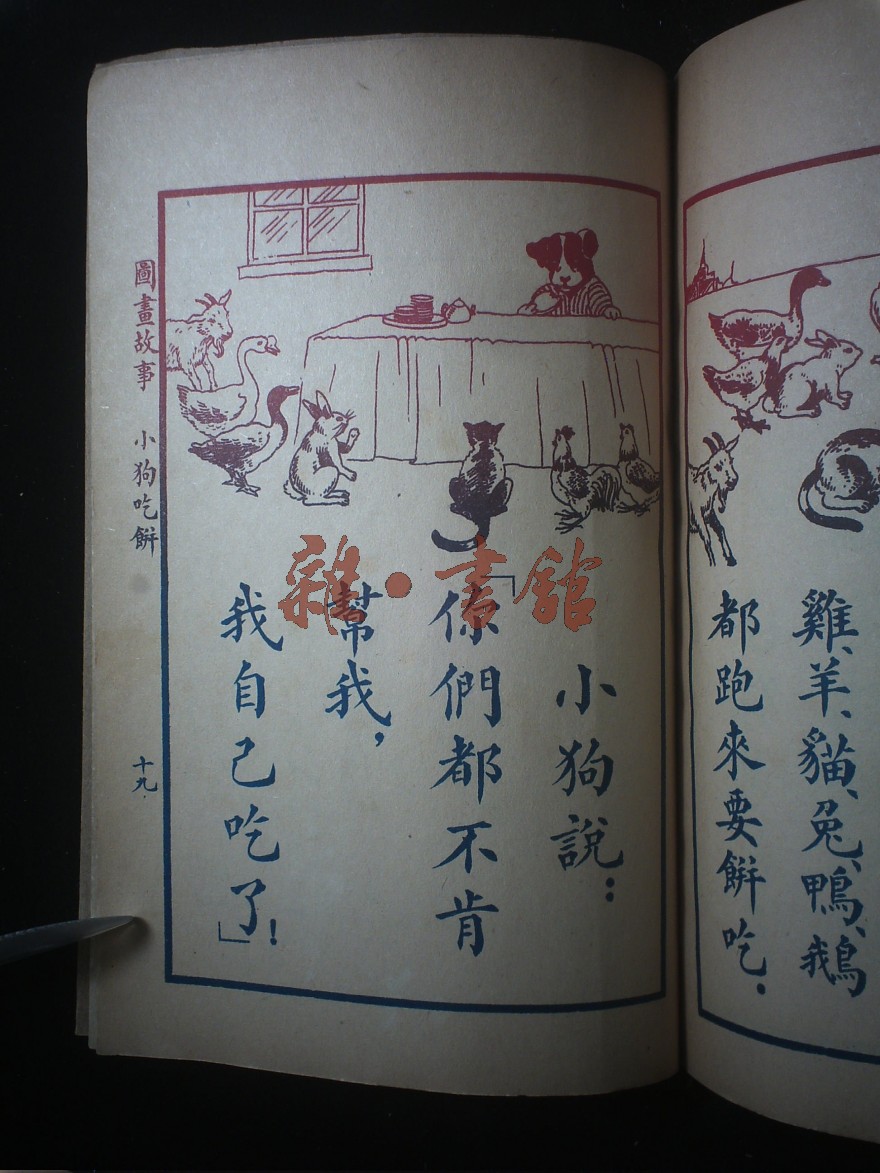 雞、羊、貓、兔、鴨、鵝
都跑來要餅吃。
小狗說：
「你們都不肯
幫我，
我自己吃了！」
圖畫故事 小狗吃餅 十九
雜·書館